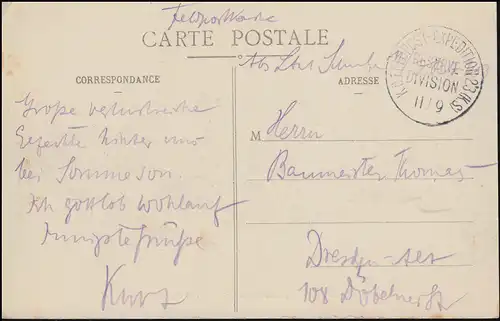 Feldpostkarte
CARTE POSTALE
CORRESPONDANCE
ADRESSE
K.S. FELDPOST-EXPEDITION 23.(K.S.)
RESERVE
DIVISION
11/9
Große verlustreiche
Gefechte hinter uns
bei Sommeson.
Ich gottlob wohlauf
Innigste Grüße
Kurt
M
Herrn
Baumeister Thomas
Dresden-Alt
108 Döbelnerstr